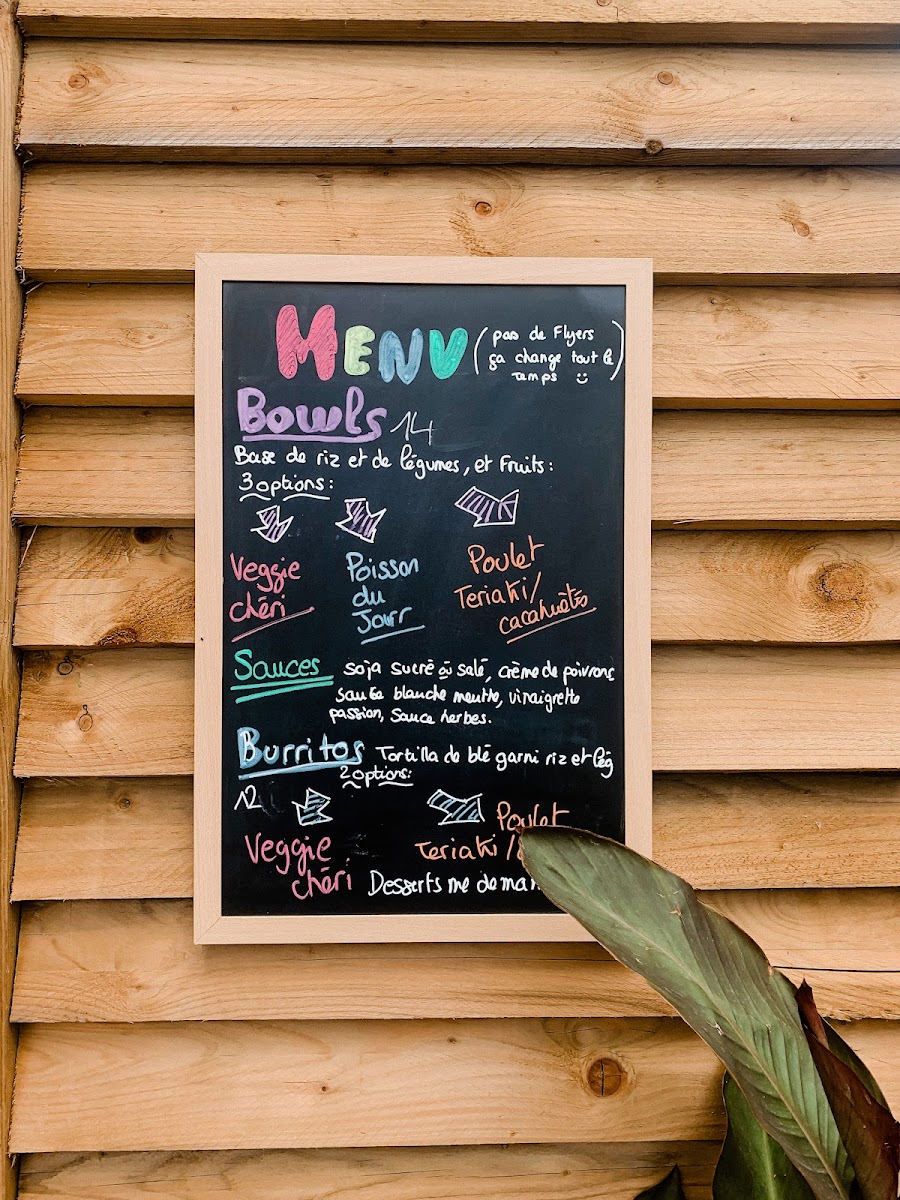 MENU (pas de Flyers
ça change tout le
temps
Bowls 14
Base de riz et de légumes, et Fruits:
3 options:
Veggie
chéri
Poisson
du
Jour
Poulet
Teriaki/
cacahuètes
Sauces soja sucré ou salé, crème de poivrons
sauce blanche menthe, vinaigrette
passion, Sauce herbes.
Burritos Tortilla de blé garni riz et lég
2 options:
12
Veggie
chéri
Poulet
Teriaki/
Desserts me deman